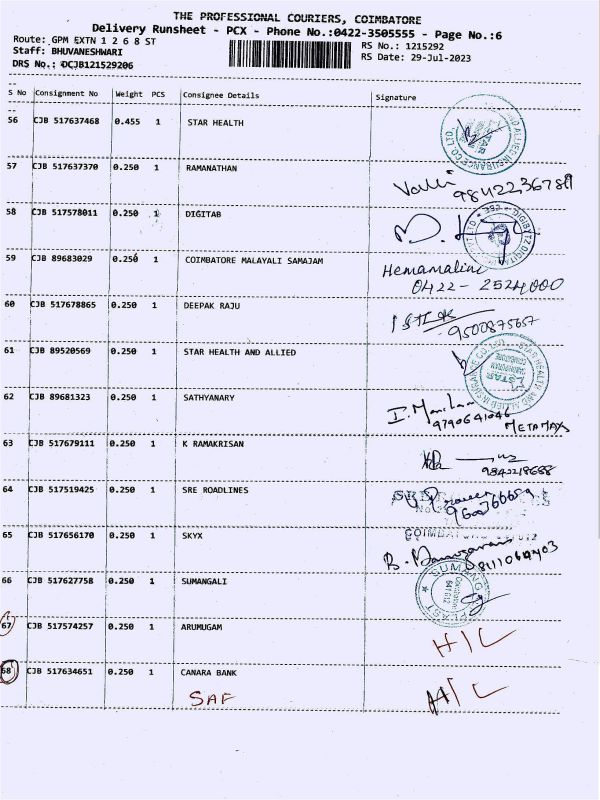 THE PROFESSIONAL COURIERS, COIMBATORE
Delivery Runsheet - PCX - Phone No.:0422-3505555 - Page No.:6
Route: GPM EXTN 1 2 6 8 ST
RS No.: 1215292
Staff: BHUVANESHWARI
RS Date: 29-Jul-2023
DRS No.: DCJB121529206
S No Consignment No Weight PCS Consignee Details Signature
56 CJB 517637468 0.455 1 STAR HEALTH
57 CJB 517637370 0.250 1 RAMANATHAN
Valli
58 CJB 517578011 0.250 1 DIGITAB
59 CJB 89683029 0.250 1 COIMBATORE MALAYALI SAMAJAM
Hemamalini
0422- 2524000
60 CJB 517678865 0.250 1 DEEPAK RAJU
9500875657
61 CJB 89520569 0.250 1 STAR HEALTH AND ALLIED
62 CJB 89681323 0.250 1 SATHYANARY
9790641046
METAMAX
63 CJB 517679111 0.250 1 K RAMAKRISAN
9842218688
64 CJB 517519425 0.250 1 SRE ROADLINES
65 CJB 517656170 0.250 1 SKYX
66 CJB 517627758 0.250 1 SUMANGALI
67 CJB 517574257 0.250 1 ARUMUGAM
H/L
68 CJB 517634651 0.250 1 CANARA BANK
SAF
H/L